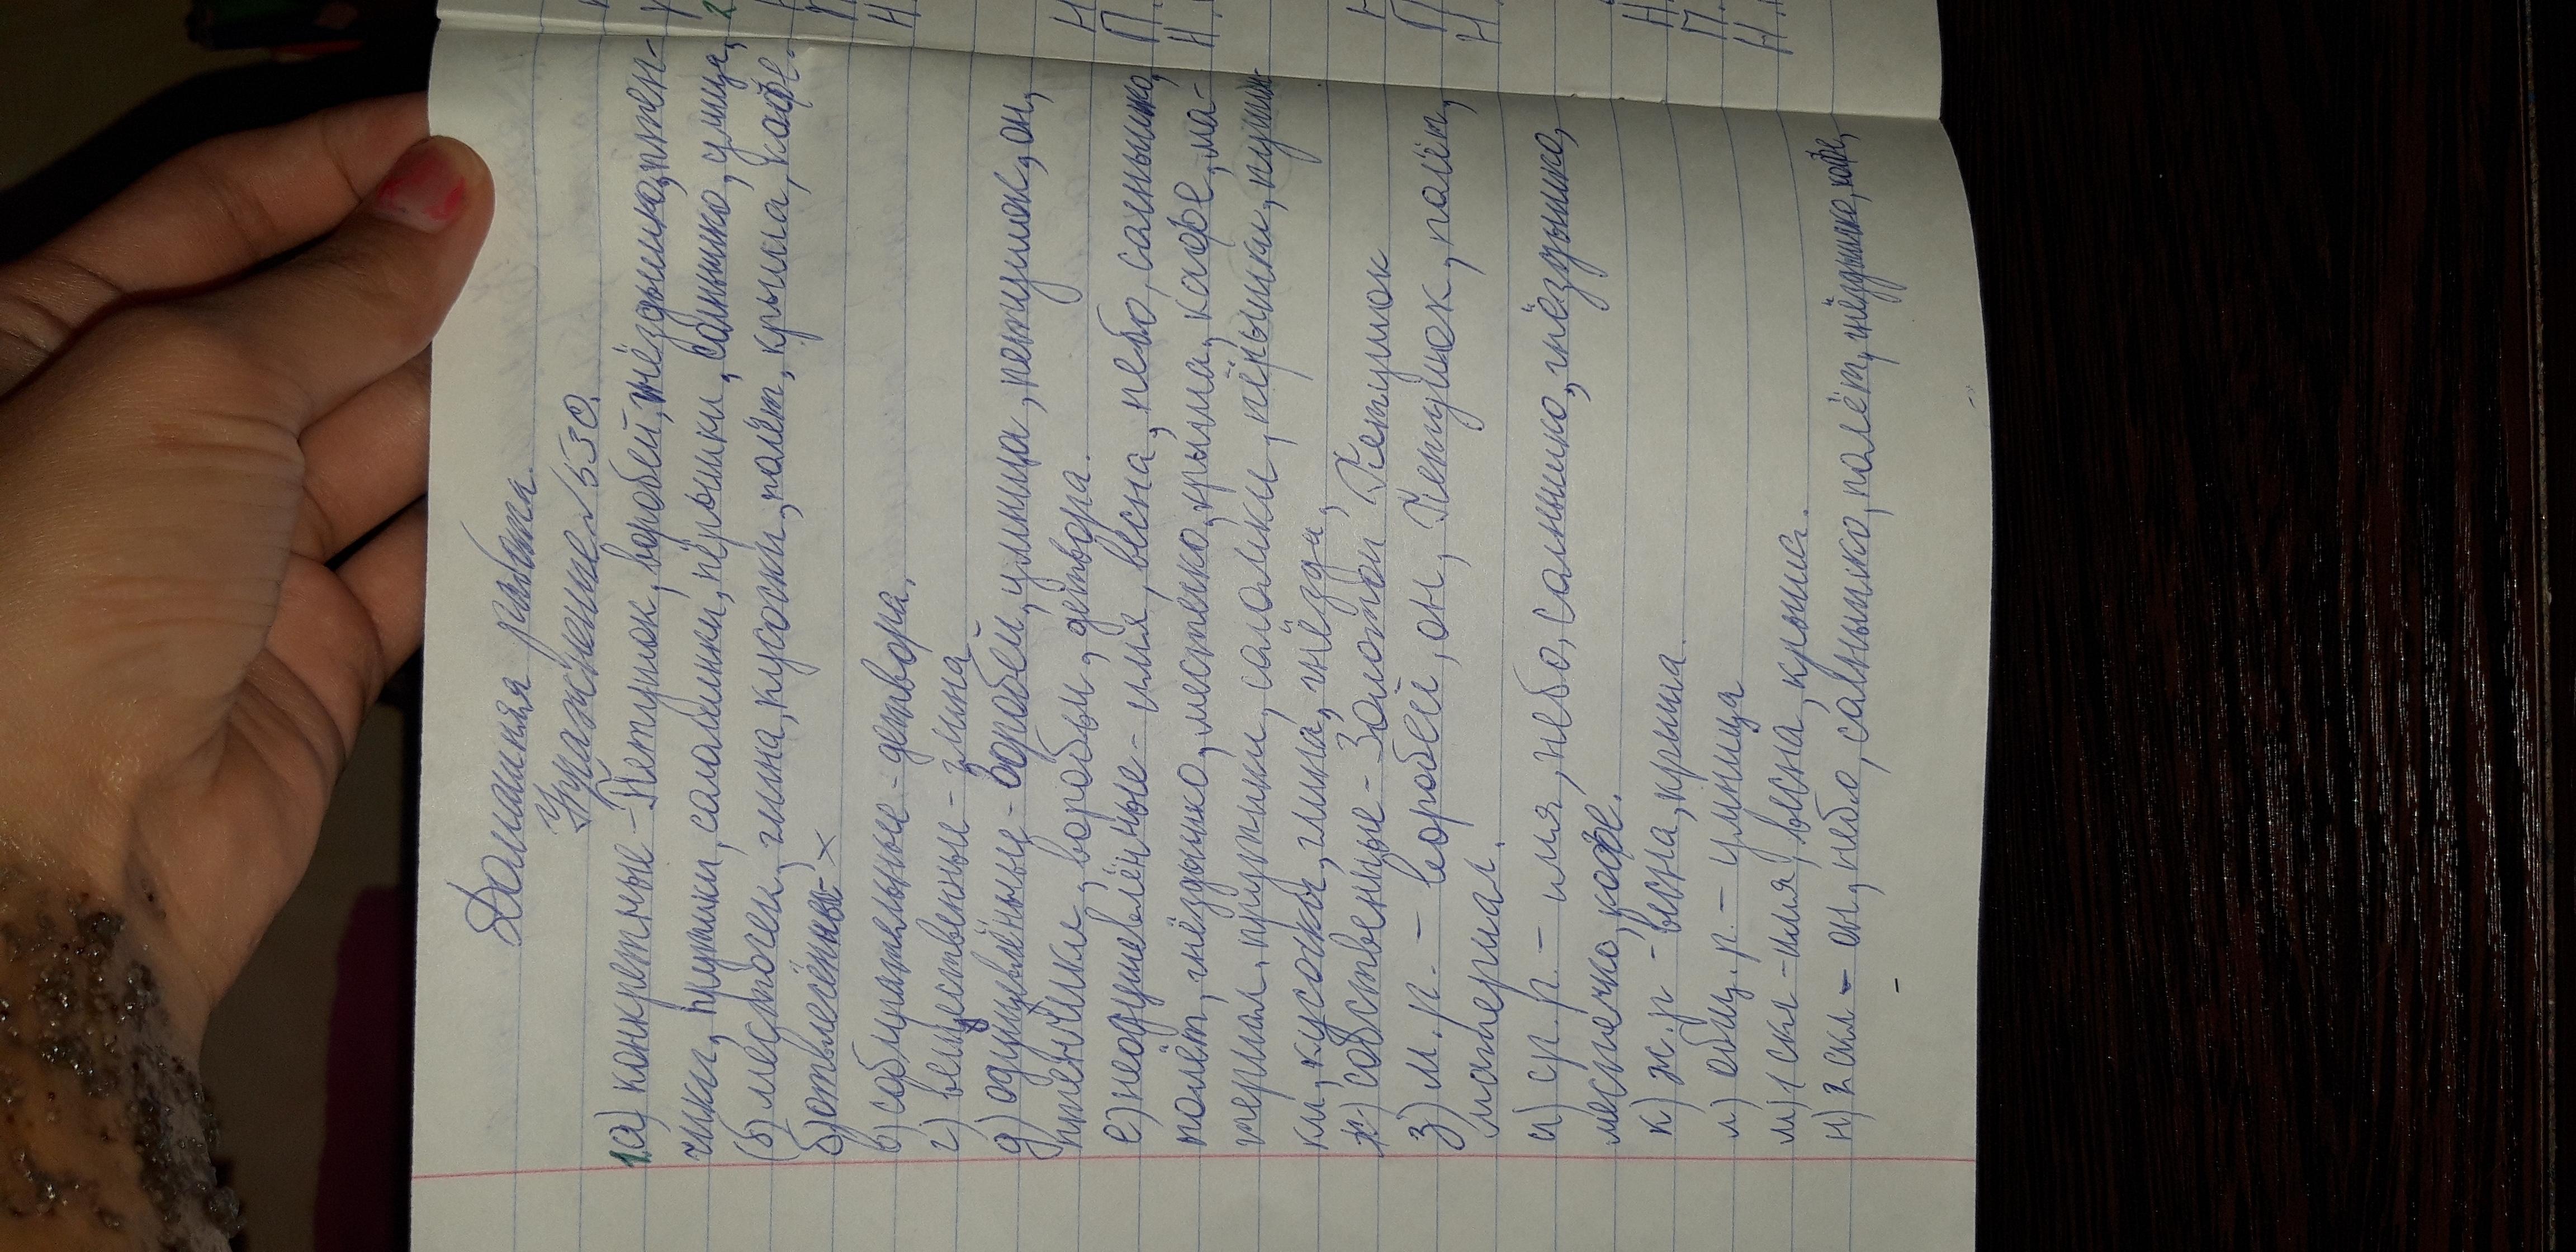 Домашняя работа.
Упражнение №530.
1.а) конкретные - Петушок, воробей, гнёздышко, птен-
чики, прутики, соломинки, пёрышки, солнышко, улица,
(б) месяцочек, глина, кусочки, полёт, крыша, кафе.
б) отвлечённые - х
в) собирательные - детвора.
г) вещественные - глина
д) одушевлённые - воробей, умница, петушок, он,
птенчики, воробьи, детвора.
е) неодушевлённые - имя, весна, небо, солнышко,
полёт, гнёздышко, местечко, крыша, кафе, ма-
териал, прутики, соломки, пёрышки, кусоч-
ки, кусочки, глина, гнёзда,
ж) собственные - Золотой Петушок
з) м.р. - воробей, он, Петушок, полёт,
материал.
и) ср.р. - имя, небо, солнышко, гнёздышко,
местечко, кафе.
к) ж.р - весна, крыша.
л) общ.р. - умница
м) 1 скл - имя, весна, крыша.
н) 2 скл - он, небо, солнышко, полёт, гнёздышко, кафе,